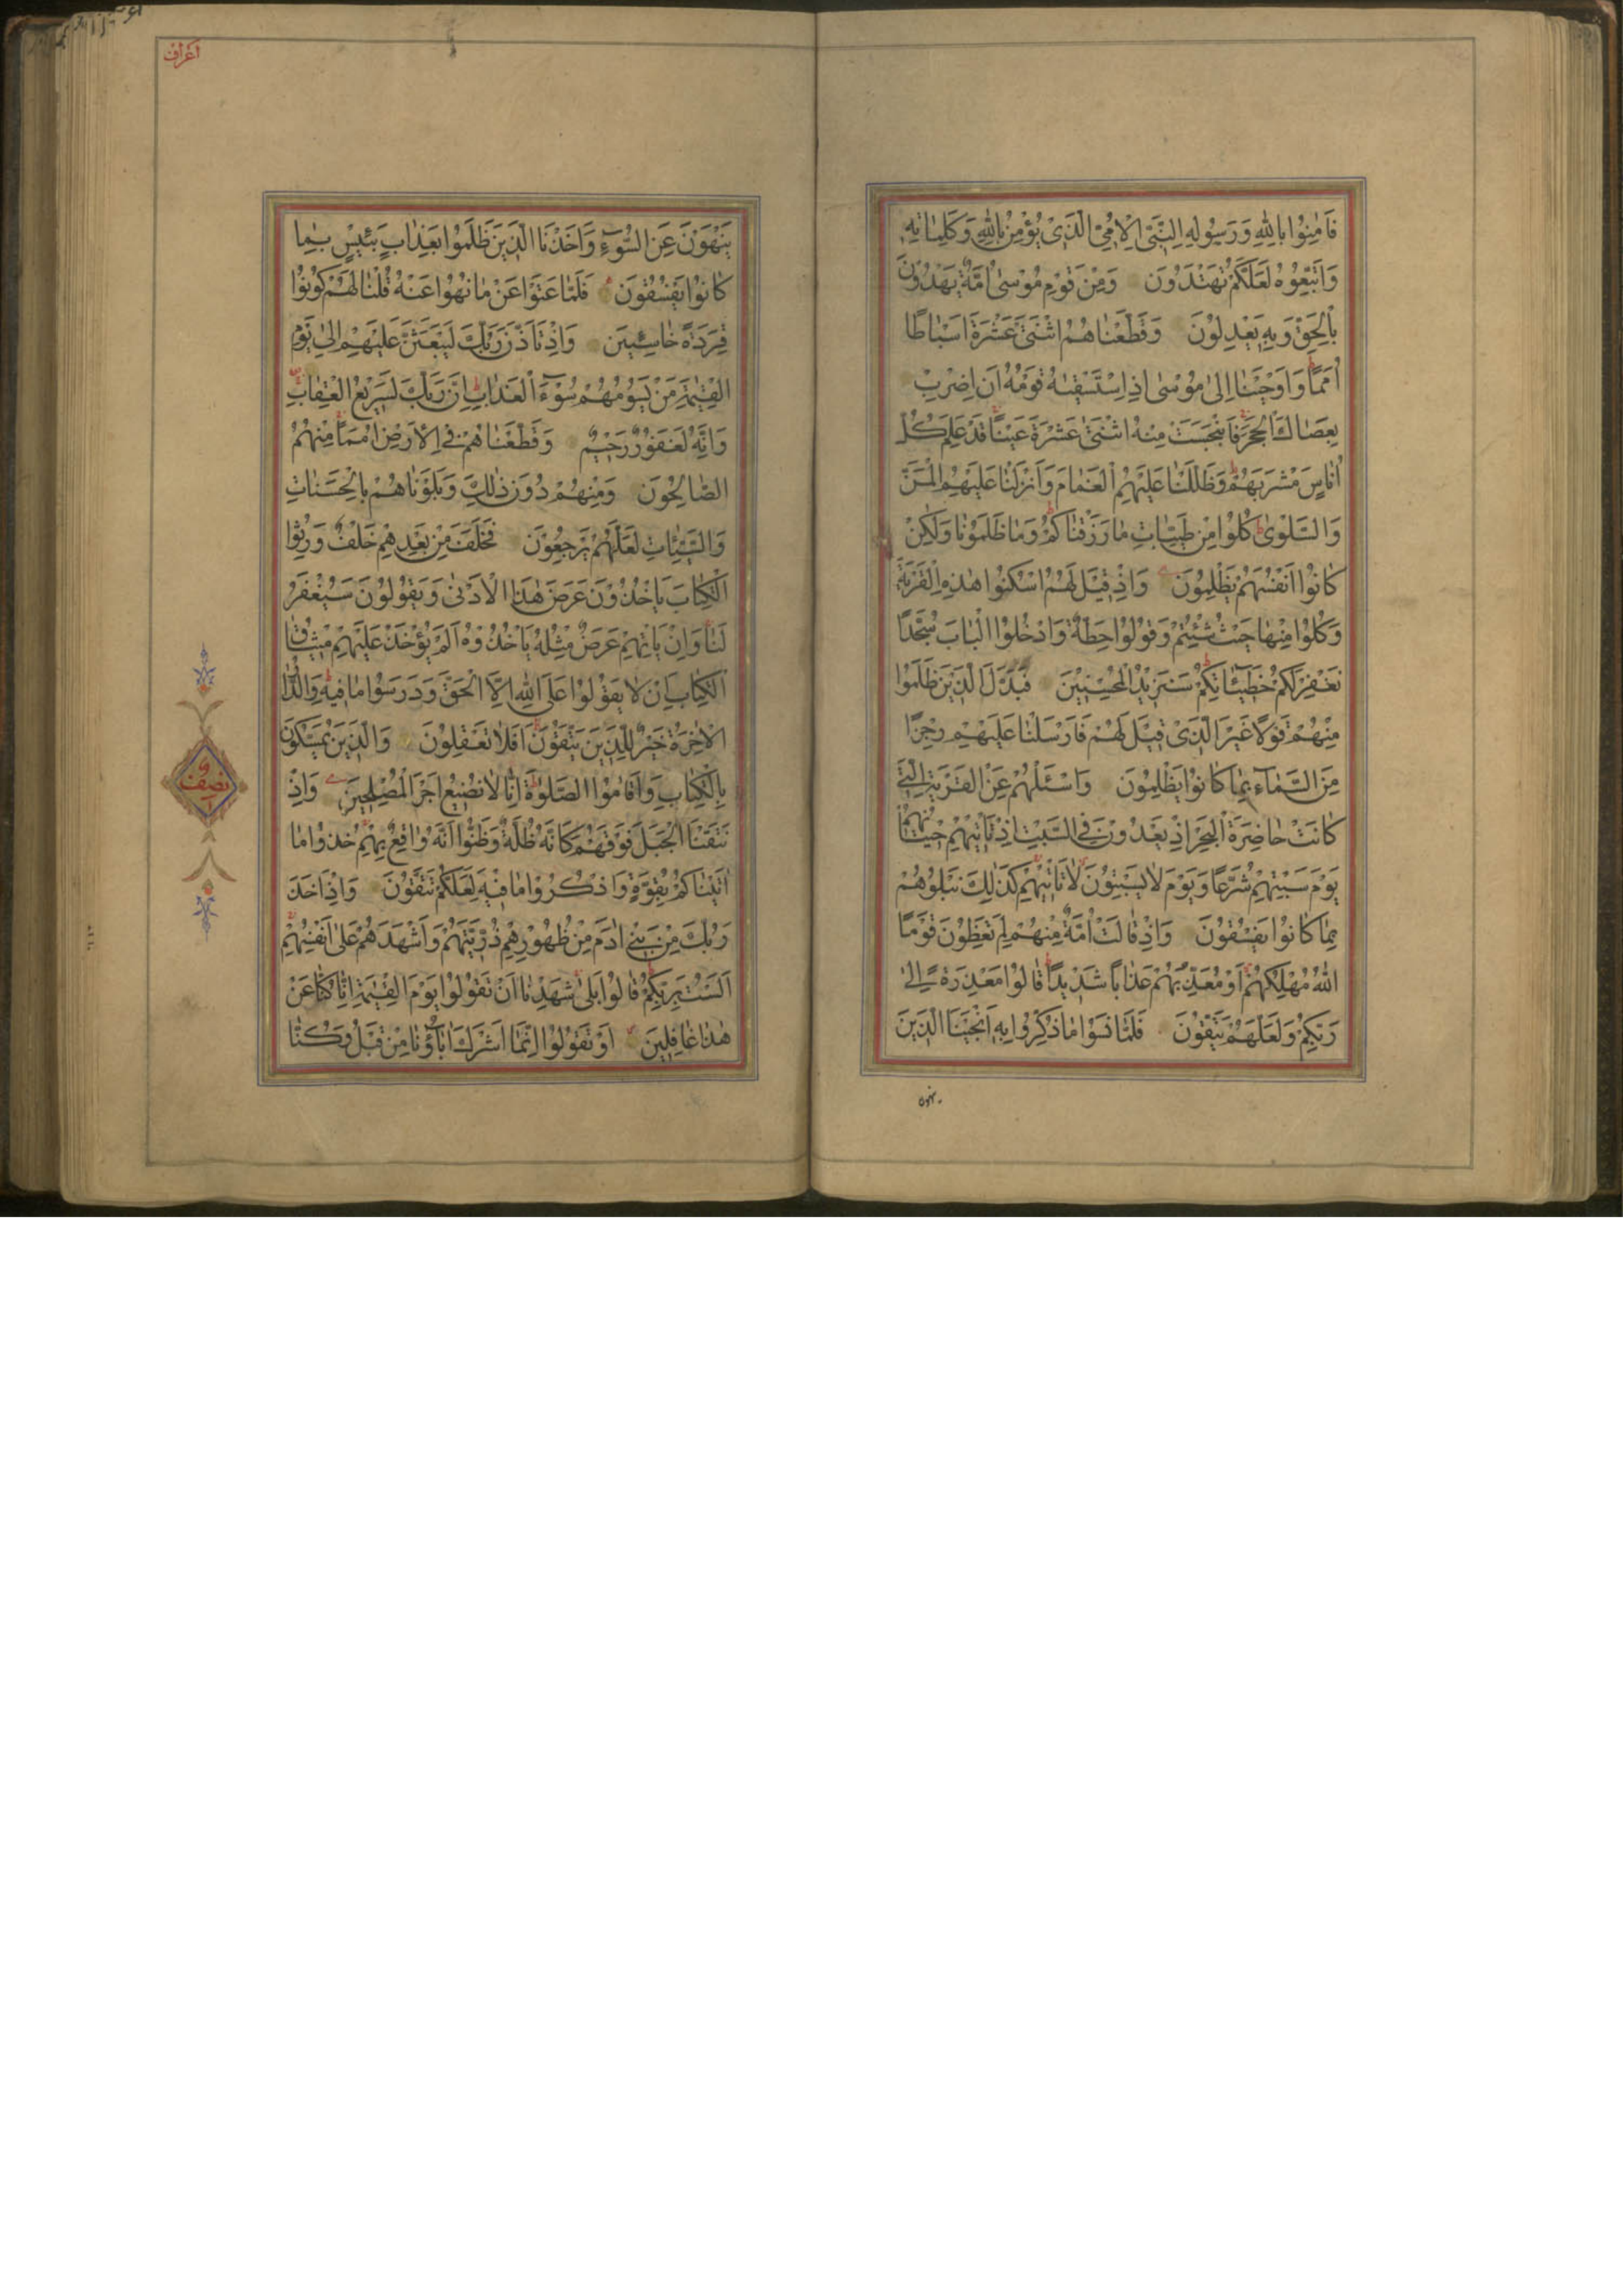 فَاٰمِنُوْا بِاللّٰهِ وَرَسُوْلِهِ النَّبِيِّ الْاُمِّيِّ الَّذِيْ يُؤْمِنُ بِاللّٰهِ وَكَلِمَاتِهٖ
وَاتَّبِعُوْهُ لَعَلَّكُمْ تَهْتَدُوْنَ وَمِنْ قَوْمِ مُوْسٰى اُمَّةٌ يَهْدُوْنَ
بِالْحَقِّ وَبِهٖ يَعْدِلُوْنَ وَقَطَّعْنَاهُمُ اثْنَتَيْ عَشْرَةَ اَسْبَاطًا
اُمَمًا وَاَوْحَيْنَا اِلٰى مُوْسٰى اِذِ اسْتَسْقٰىهُ قَوْمُهُ اَنِ اضْرِبْ
بِعَصَاكَ الْحَجَرَ فَانْبَجَسَتْ مِنْهُ اثْنَتَا عَشْرَةَ عَيْنًا قَدْ عَلِمَ كُلُّ
اُنَاسٍ مَشْرَبَهُمْ وَظَلَّلْنَا عَلَيْهِمُ الْغَمَامَ وَاَنْزَلْنَا عَلَيْهِمُ الْمَنَّ
وَالسَّلْوٰى كُلُوْا مِنْ طَيِّبَاتِ مَا رَزَقْنَاكُمْ وَمَا ظَلَمُوْنَا وَلٰكِنْ
كَانُوْا اَنْفُسَهُمْ يَظْلِمُوْنَ وَاِذْ قِيْلَ لَهُمُ اسْكُنُوْا هٰذِهِ الْقَرْيَةَ
وَكُلُوْا مِنْهَا حَيْثُ شِئْتُمْ وَقُوْلُوْا حِطَّةٌ وَادْخُلُوا الْبَابَ سُجَّدًا
نَغْفِرْ لَكُمْ خَطِيْئَاتِكُمْ سَنَزِيْدُ الْمُحْسِنِيْنَ فَبَدَّلَ الَّذِيْنَ ظَلَمُوْا
مِنْهُمْ قَوْلًا غَيْرَ الَّذِيْ قِيْلَ لَهُمْ فَاَرْسَلْنَا عَلَيْهِمْ رِجْزًا
مِنَ السَّمَاءِ بِمَا كَانُوْا يَظْلِمُوْنَ وَاسْئَلْهُمْ عَنِ الْقَرْيَةِ الَّتِيْ
كَانَتْ حَاضِرَةَ الْبَحْرِ اِذْ يَعْدُوْنَ فِي السَّبْتِ اِذْ تَاْتِيْهِمْ حِيْتَانُهُمْ
يَوْمَ سَبْتِهِمْ شُرَّعًا وَيَوْمَ لَا يَسْبِتُوْنَ لَا تَاْتِيْهِمْ كَذٰلِكَ نَبْلُوْهُمْ
بِمَا كَانُوْا يَفْسُقُوْنَ وَاِذْ قَالَتْ اُمَّةٌ مِنْهُمْ لِمَ تَعِظُوْنَ قَوْمًا
اللّٰهُ مُهْلِكُهُمْ اَوْ مُعَذِّبُهُمْ عَذَابًا شَدِيْدًا قَالُوْا مَعْذِرَةً اِلٰى
رَبِّكُمْ وَلَعَلَّهُمْ يَتَّقُوْنَ فَلَمَّا نَسُوْا مَا ذُكِّرُوْا بِهٖ اَنْجَيْنَا الَّذِيْنَ
ينهون
اَعْرَاف
يَنْهَوْنَ عَنِ السُّوْءِ وَاَخَذْنَا الَّذِيْنَ ظَلَمُوْا بِعَذَابٍ بَئِيْسٍ بِمَا
كَانُوْا يَفْسُقُوْنَ فَلَمَّا عَتَوْا عَنْ مَا نُهُوْا عَنْهُ قُلْنَا لَهُمْ كُوْنُوْا
قِرَدَةً خَاسِئِيْنَ وَاِذْ تَاَذَّنَ رَبُّكَ لَيَبْعَثَنَّ عَلَيْهِمْ اِلٰى يَوْمِ
الْقِيٰمَةِ مَنْ يَسُوْمُهُمْ سُوْءَ الْعَذَابِ اِنَّ رَبَّكَ لَسَرِيْعُ الْعِقَابِ
وَاِنَّهُ لَغَفُوْرٌ رَحِيْمٌ وَقَطَّعْنَاهُمْ فِي الْاَرْضِ اُمَمًا مِنْهُمُ
الصَّالِحُوْنَ وَمِنْهُمْ دُوْنَ ذٰلِكَ وَبَلَوْنَاهُمْ بِالْحَسَنَاتِ
وَالسَّيِّئَاتِ لَعَلَّهُمْ يَرْجِعُوْنَ فَخَلَفَ مِنْ بَعْدِهِمْ خَلْفٌ وَرِثُوا
الْكِتَابَ يَاْخُذُوْنَ عَرَضَ هٰذَا الْاَدْنٰى وَيَقُوْلُوْنَ سَيُغْفَرُ
لَنَا وَاِنْ يَاْتِهِمْ عَرَضٌ مِثْلُهُ يَاْخُذُوْهُ اَلَمْ يُؤْخَذْ عَلَيْهِمْ مِيْثَاقُ
الْكِتَابِ اَنْ لَا يَقُوْلُوْا عَلَى اللّٰهِ اِلَّا الْحَقَّ وَدَرَسُوْا مَا فِيْهِ وَالدَّارُ
الْاٰخِرَةُ خَيْرٌ لِلَّذِيْنَ يَتَّقُوْنَ اَفَلَا تَعْقِلُوْنَ وَالَّذِيْنَ يُمَسِّكُوْنَ
بِالْكِتَابِ وَاَقَامُوا الصَّلٰوةَ اِنَّا لَا نُضِيْعُ اَجْرَ الْمُصْلِحِيْنَ وَاِذْ
نَتَقْنَا الْجَبَلَ فَوْقَهُمْ كَاَنَّهُ ظُلَّةٌ وَظَنُّوْا اَنَّهُ وَاقِعٌ بِهِمْ خُذُوْا مَا
اٰتَيْنَاكُمْ بِقُوَّةٍ وَاذْكُرُوْا مَا فِيْهِ لَعَلَّكُمْ تَتَّقُوْنَ وَاِذْ اَخَذَ
رَبُّكَ مِنْ بَنِيْ اٰدَمَ مِنْ ظُهُوْرِهِمْ ذُرِّيَّتَهُمْ وَاَشْهَدَهُمْ عَلٰى اَنْفُسِهِمْ
اَلَسْتُ بِرَبِّكُمْ قَالُوْا بَلٰى شَهِدْنَا اَنْ تَقُوْلُوْا يَوْمَ الْقِيٰمَةِ اِنَّا كُنَّا عَنْ
هٰذَا غَافِلِيْنَ اَوْ تَقُوْلُوْا اِنَّمَا اَشْرَكَ اٰبَاؤُنَا مِنْ قَبْلُ وَكُنَّا
نصف